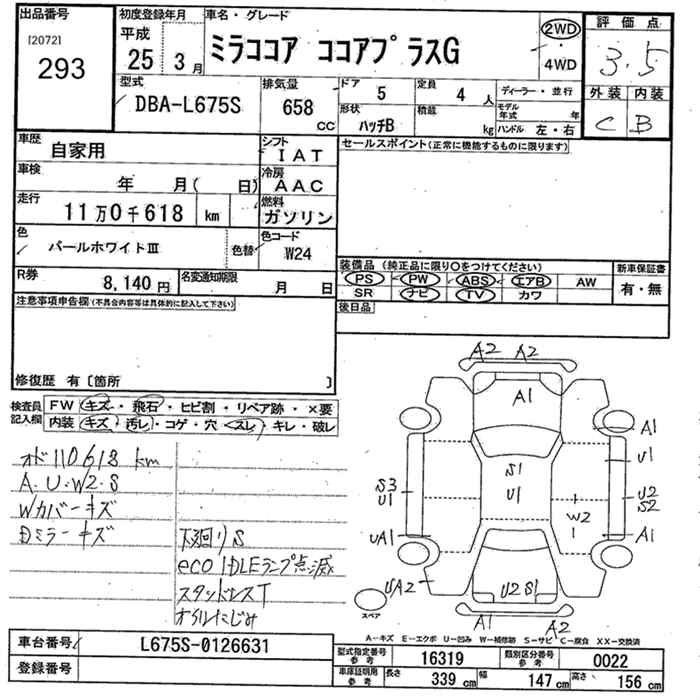 出品番号
[2072]
293
初度登録年月
平成
25年 3月
車名・グレード
ミラココア ココアプラスG
2WD
4WD
評価点
3.5
外装 内装
C B
型式
DBA-L675S
排気量
658 cc
ドア 5
形状 ハッチB
定員 4 人
積載 kg
ディーラー・並行
モデル年式 年
ハンドル 左・右
車歴 自家用
シフト IAT
車検 年 月( 日)
冷房 AAC
走行 11万0千618 km
燃料 ガソリン
色 パールホワイトⅢ
色替
色コード W24
R券 8,140円
名変通知期限 月 日
セールスポイント(正常に機能するものに限ります)
装備品(純正品に限り○をつけてください)
新車保証書
PS PW ABS エアB AW
SR ナビ TV カワ
有・無
後日品
注意事項申告欄(不具合内容等は具体的に記入して下さい)
修復歴 有〔箇所 〕
検査員記入欄
FW キズ・飛石・ヒビ割・リペア跡・×要
内装 キズ・汚レ・コゲ・穴・スレ・キレ・破レ
オド110618 km
A・U・W2・S
Wカバーキズ
Dミラーキズ
下廻りS
eco IDLEランプ点滅
スタッドレスT
オイルにじみ
A2 A2
A1
A1
U1
S1
U1
S3
U1
U2
S2
W2
UA1
A1
UA2
U2 S1
A1 A2
スペア
A-キズ E-エクボ U-凹み W-補修跡 S-サビ C-腐食 XX-交換済
車台番号 L675S-0126631
登録番号
型式指定番号参考 16319
類別区分番号参考 0022
車庫証明用参考 長さ 339 cm 幅 147 cm 高さ 156 cm